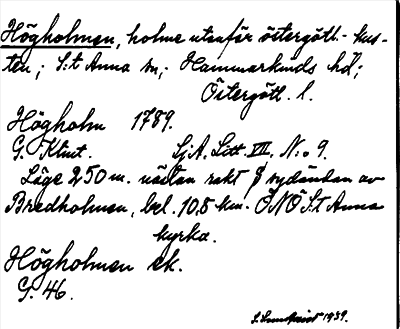 Högholmen, holme utanför östergötl.-kus-
ten; S:t Anna sn; Hammarkinds hd;
Östergötl. l.
Högholm 1789.
G. Klint. SjA. Litt. VII. N:o 9.
Läge 250 m. nästan rakt S sydändan av
Bredholmen, bel. 10,5 km. ÖNÖ S:t Anna
kyrka.
Högholmen ek.
G. 46.
S. Lundqvist 1939.